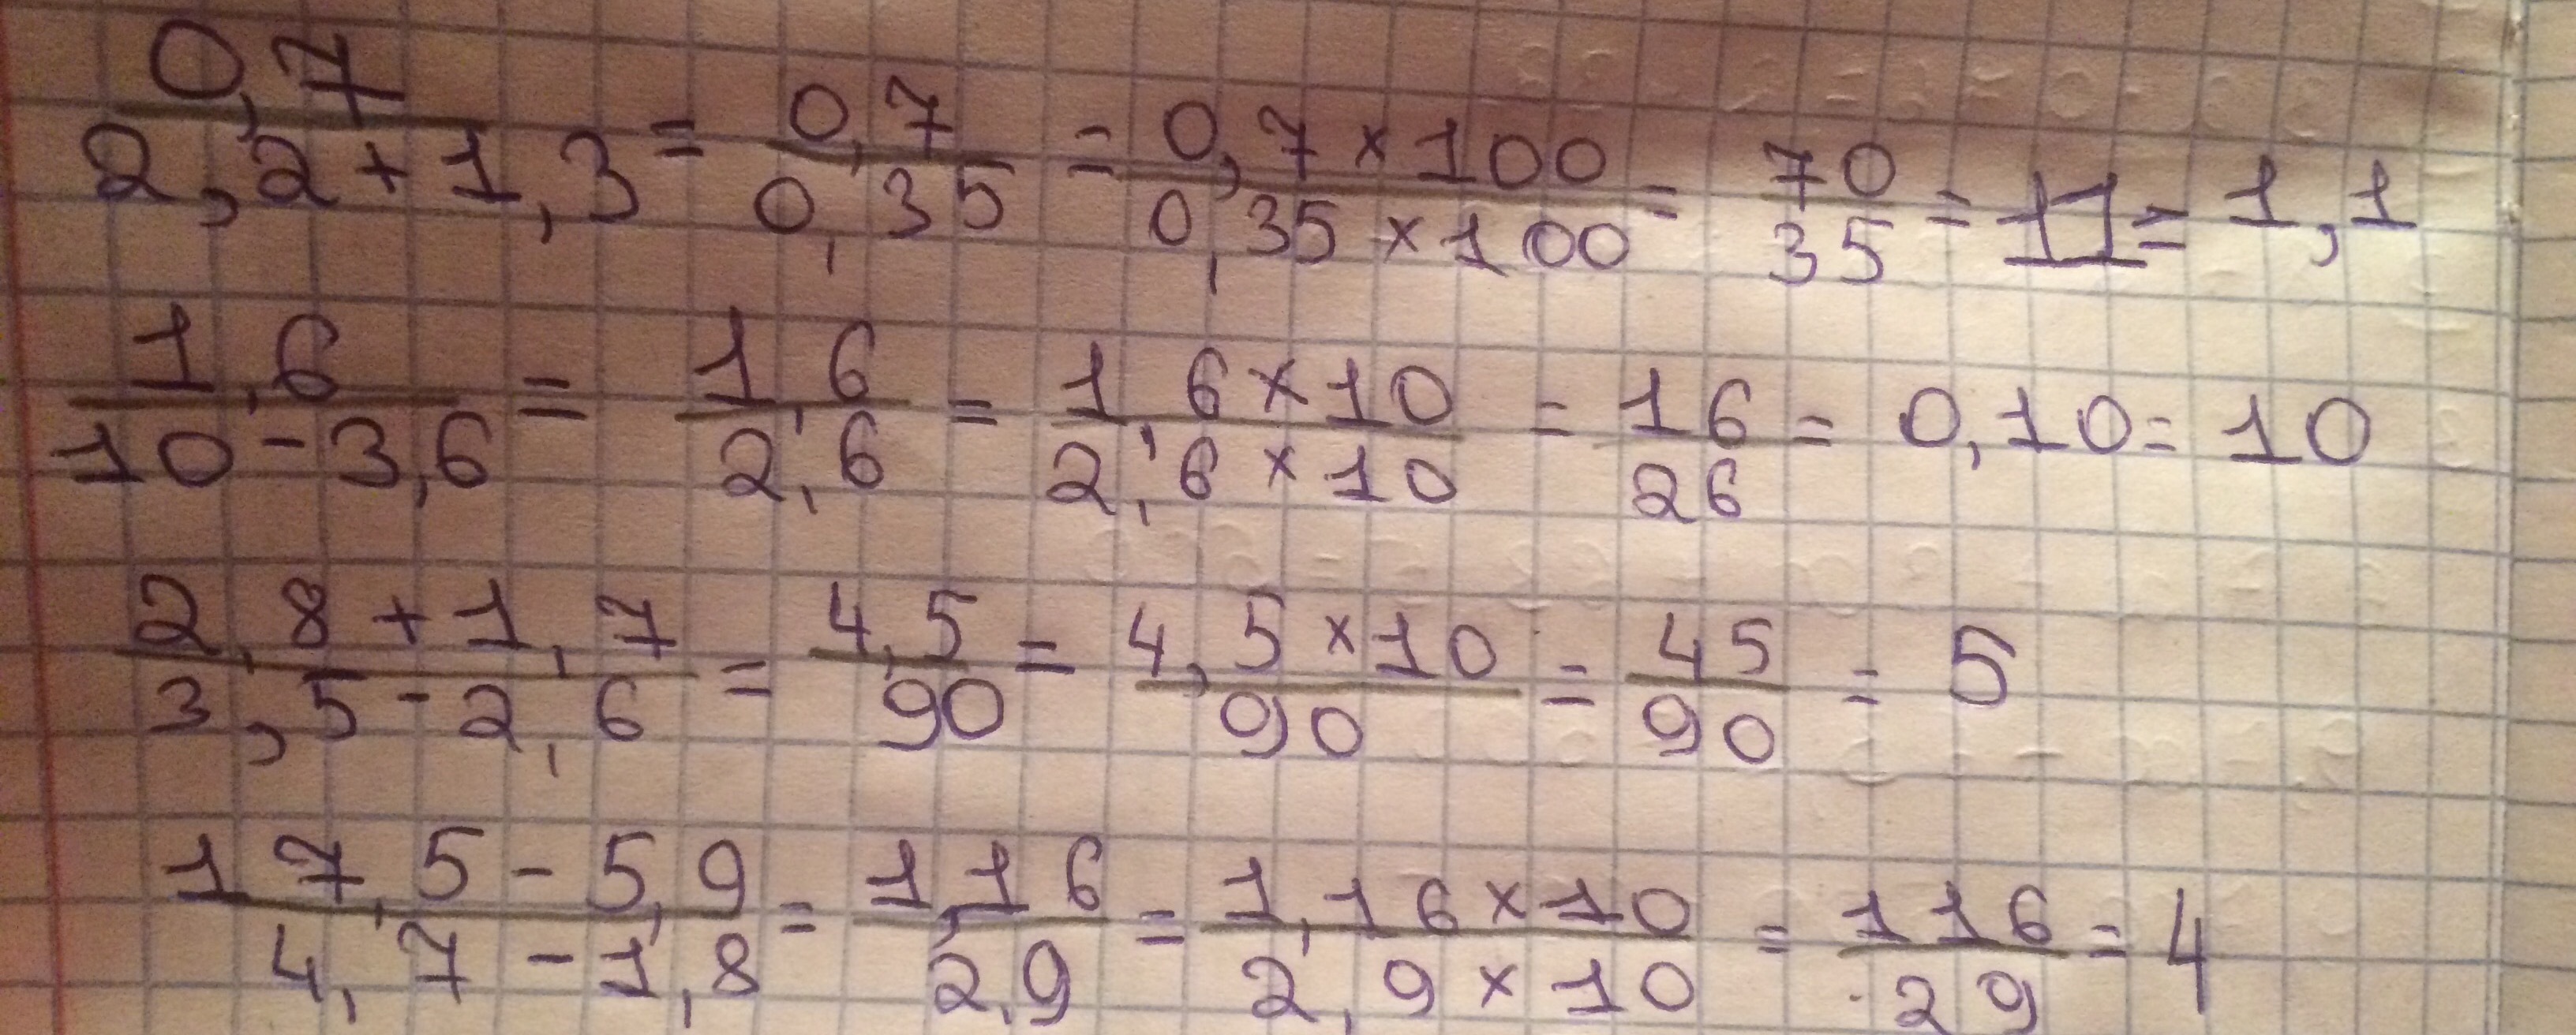 0,7/(2,2+1,3) = 0,7/0,35 = (0,7×100)/(0,35×100) = 70/35 = 11 = 1,1
1,6/(10-3,6) = 1,6/2,6 = (1,6×10)/(2,6×10) = 16/26 = 0,10 = 10
(2,8+1,7)/(3,5-2,6) = 4,5/90 = (4,5×10)/90 = 45/90 = 5
(17,5-5,9)/(4,7-1,8) = 1,16/2,9 = (1,16×10)/(2,9×10) = 116/29 = 4